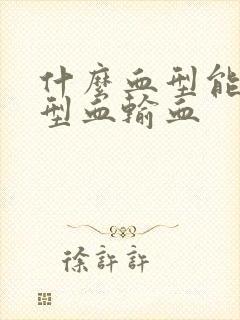 什麼血型能
型血輸血
徐許許